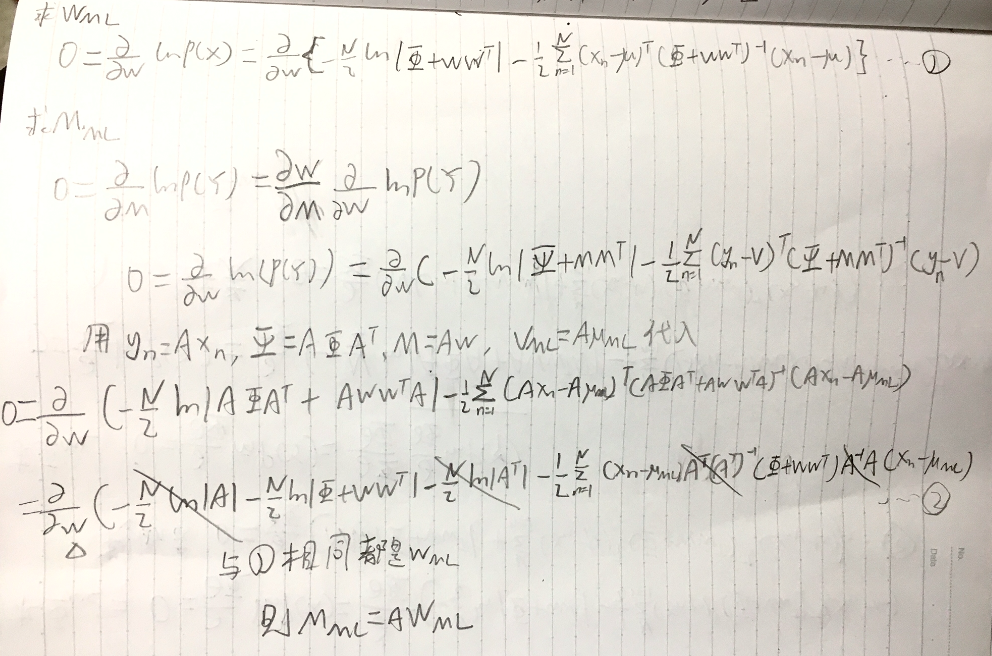 求 W_ML
0 = ∂/∂W ln p(x) = ∂/∂W { -N/2 ln|Φ+WW^T| - 1/2 Σ_{n=1}^{N} (x_n-μ)^T (Φ+WW^T)^{-1} (x_n-μ) } ... ①
求 M_ML
0 = ∂/∂M ln P(Y) = ∂W/∂M ∂/∂W ln P(Y)
0 = ∂/∂W ln(P(Y)) = ∂/∂W ( -N/2 ln|Ψ+MM^T| - 1/2 Σ_{n=1}^{N} (y_n-V)^T (Ψ+MM^T)^{-1} (y_n-V)
用 y_n=Ax_n, Ψ=AΦA^T, M=AW, V_ML=Aμ_ML 代入
0 = ∂/∂W ( -N/2 ln|AΦA^T + AWW^TA| - 1/2 Σ_{n=1}^{N} (Ax_n-Aμ_ML)^T (AΦA^T+AWW^TA)^{-1} (Ax_n-Aμ_ML)
= ∂/∂W ( -N/2 ln|A| - N/2 ln|Φ+WW^T| - N/2 ln|A^T| - 1/2 Σ_{n=1}^{N} (x_n-μ_ML) A^T(A^T)^{-1} (Φ+WW^T) A^{-1}A (x_n-μ_ML) ... ②
△
与①相同都是W_ML
则 M_ML = AW_ML
No.
Date